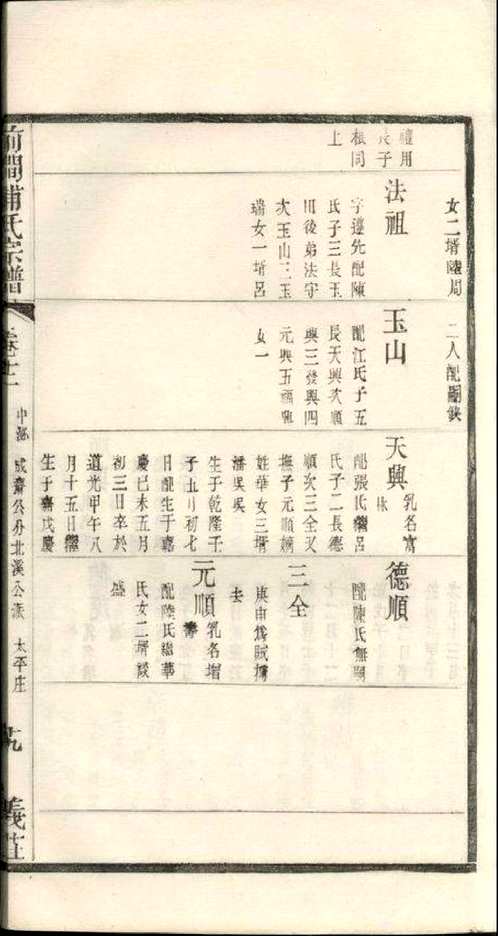 禮用
長子
根同
上
女二壻陸周
法祖
字遵先配陳
氏子三長玉
田後弟法守
次玉山三玉
瑞女一壻呂
二人配闕缺
玉山
配江氏子五
長天興次順
興三發興四
元興五福興
女一
天興
乳名富
配張氏繼呂
氏子二長德
順次三全又
撫子元順嫡
姓華女三壻
潘吳吳
生于乾隆壬
子五月初七
日配生于嘉
慶己未五月
初三日卒於
道光甲午八
月十五日繼
生于嘉戊慶
德順
配陳氏無嗣
三全
庚申爲賊擄
去
元順
乳名增
壽
配陸氏繼華
氏女二壻談
盛
前澗浦氏宗譜
卷十二
成齋公分北溪公派
太平庄
九
義莊